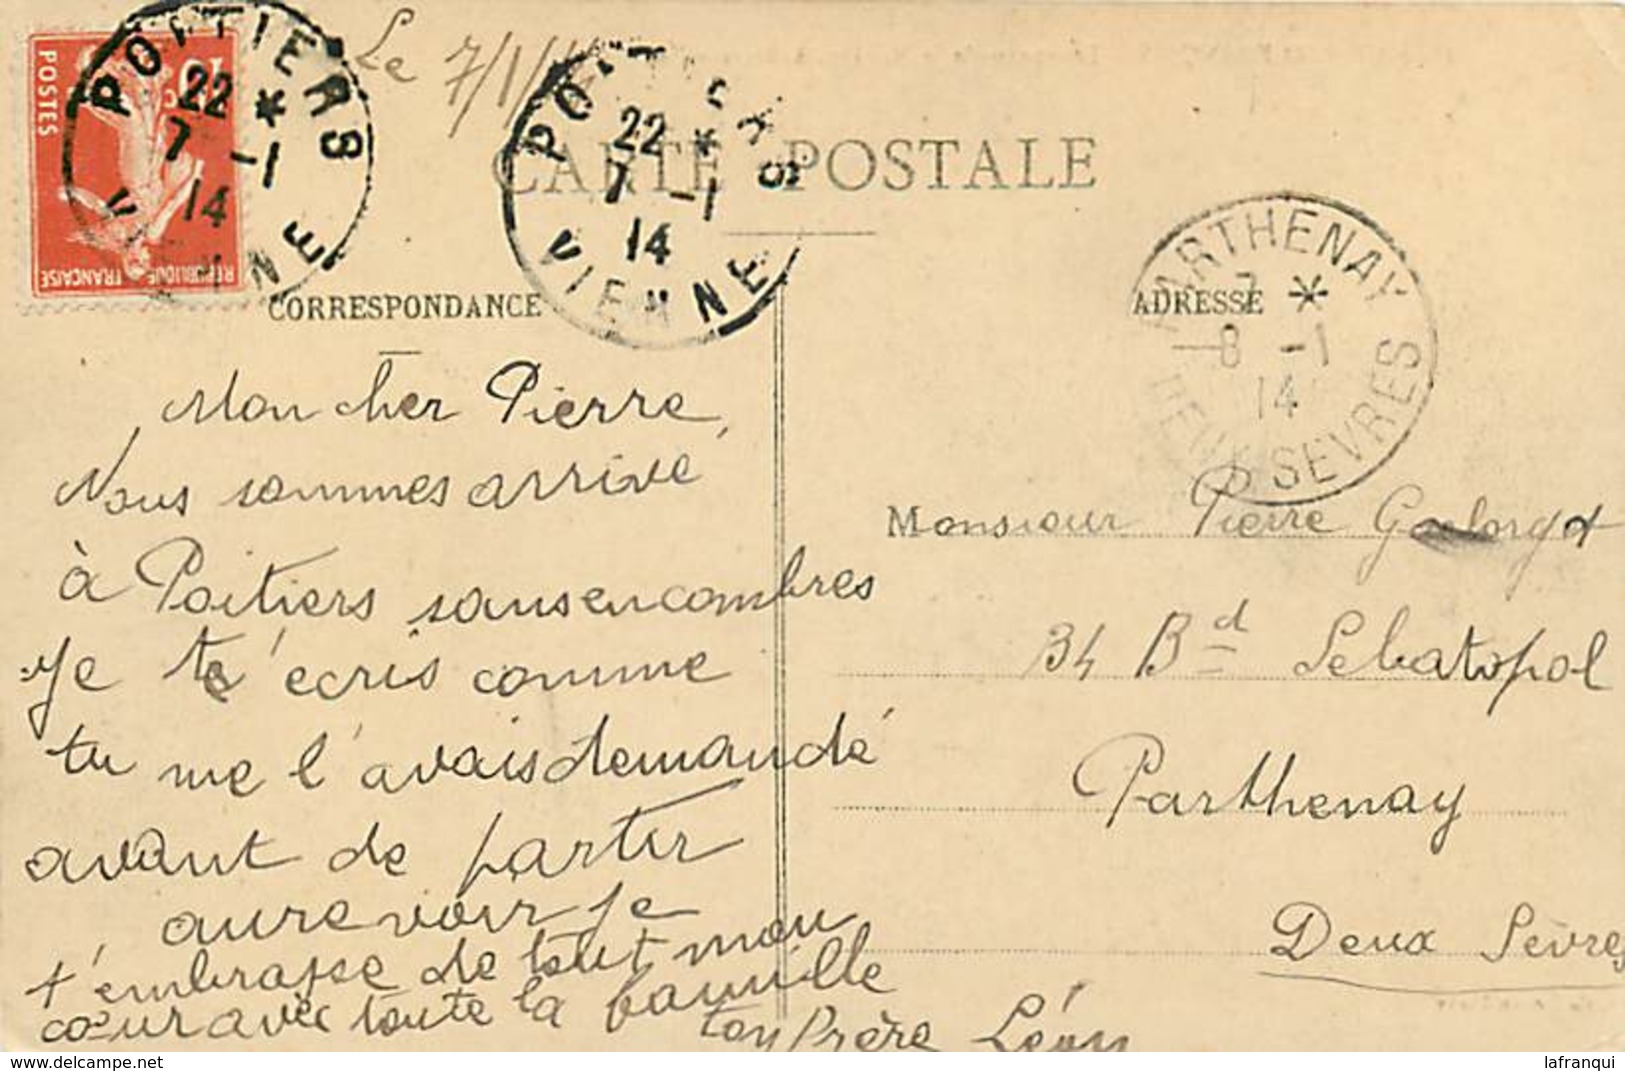 Le 7/1/14
POSTES
10
c
REPUBLIQUE FRANÇAISE
POITIERS
22 *
7 -1
14
VIENNE
POITIERS
22 *
7 -1
14
VIENNE
CARTE POSTALE
PARTHENAY
7 *
8 -1
14
DEUX SEVRES
CORRESPONDANCE
ADRESSE
Mon cher Pierre,
Nous sommes arrivé
à Poitiers sans encombres
Je te écris comme
tu me l'avais demandé
avant de partir
aurevoir je
t'embrasse de tout mon
cœur avec toute la famille
ton Frère Léon
Monsieur Pierre
34 Bd Sebatopol
Parthenay
Deux Sèvres
delcampe.net
lafranqui